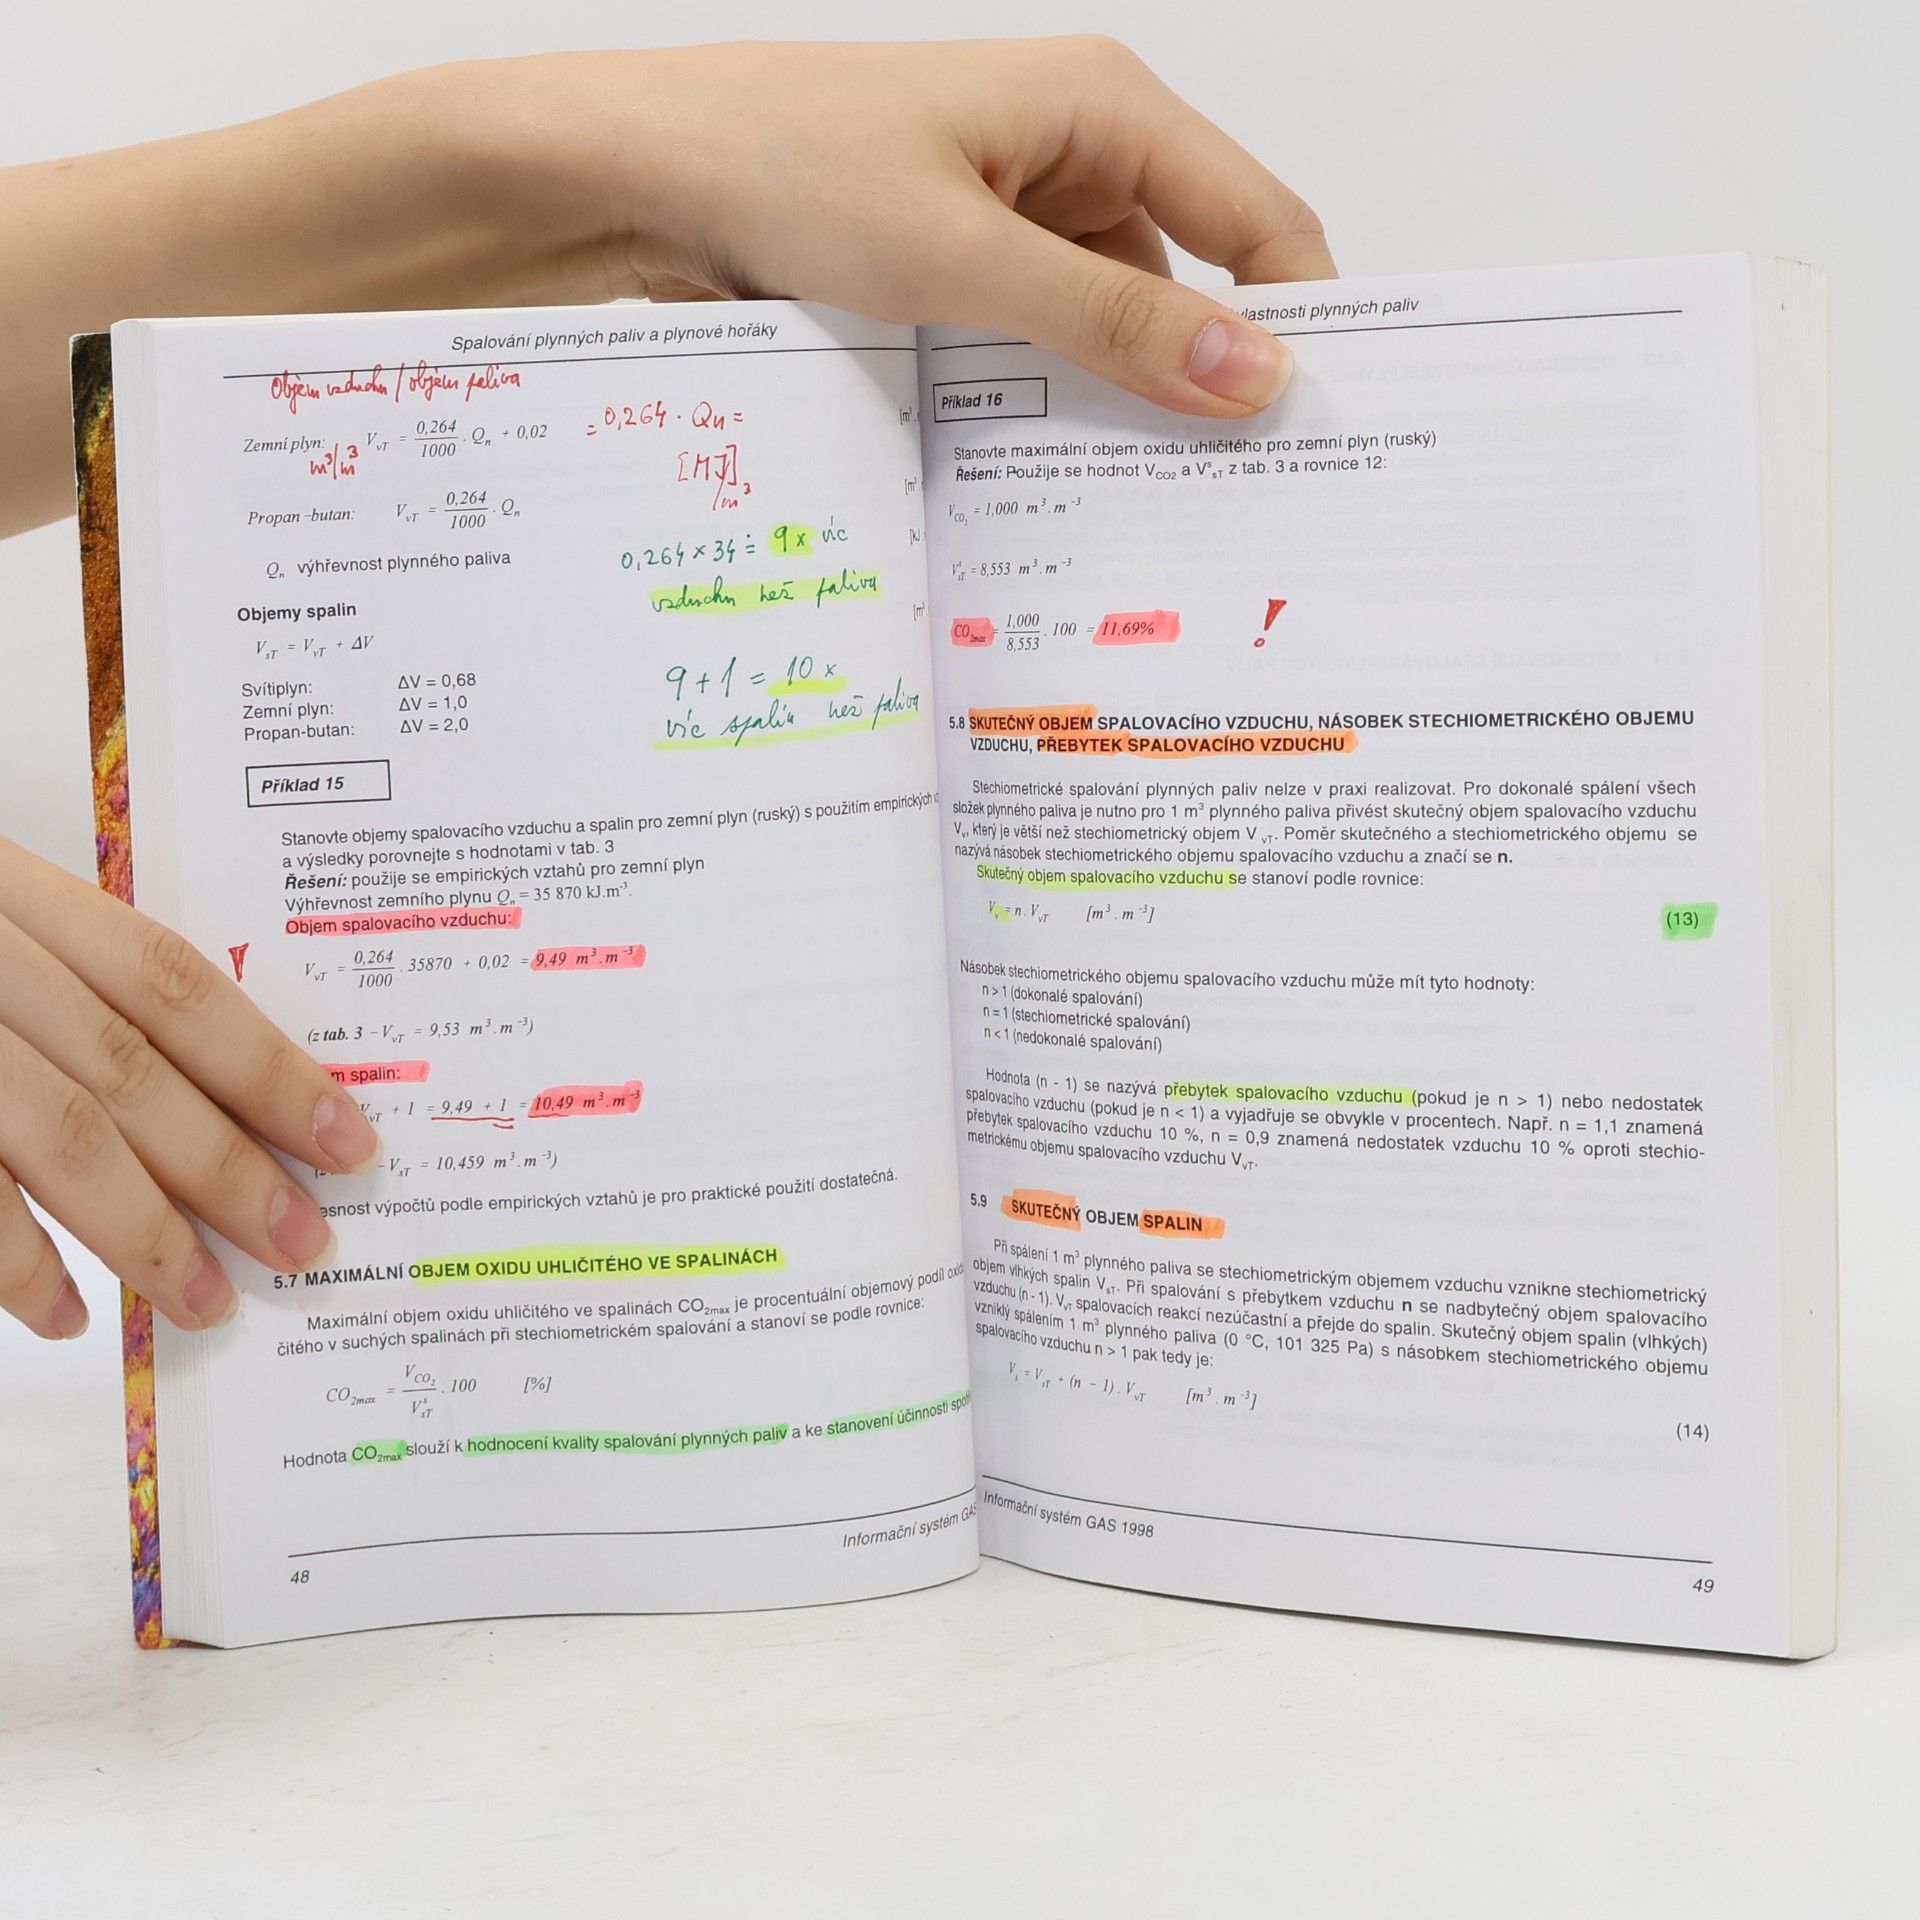 Spalování plynných paliv a plynové hořáky
Objem vzduchu / objem paliva
Zemní plyn: V_vT = 0,264/1000 . Q_n + 0,02 = 0,264 . Qn = [m³
m³/m³ [MJ]/m³
Propan -butan: V_vT = 0,264/1000 . Q_n [m³
Q_n výhřevnost plynného paliva [kJ
0,264 x 34 ≐ 9 x víc
vzduchu než paliva
Objemy spalin
V_sT = V_vT + ΔV [m³
Svítiplyn: ΔV = 0,68
Zemní plyn: ΔV = 1,0
Propan-butan: ΔV = 2,0
9 + 1 = 10 x
víc spalin než paliva
Příklad 15
Stanovte objemy spalovacího vzduchu a spalin pro zemní plyn (ruský) s použitím empirických
a výsledky porovnejte s hodnotami v tab. 3
Řešení: použije se empirických vztahů pro zemní plyn
Výhřevnost zemního plynu Q_n = 35 870 kJ.m⁻³.
Objem spalovacího vzduchu:
! V_vT = 0,264/1000 . 35870 + 0,02 = 9,49 m³.m⁻³
(z tab. 3 – V_vT = 9,53 m³.m⁻³)
m spalin:
V_vT + 1 = 9,49 + 1 = 10,49 m³.m⁻³
– V_sT = 10,459 m³.m⁻³)
esnost výpočtů podle empirických vztahů je pro praktické použití dostatečná.
5.7 MAXIMÁLNÍ OBJEM OXIDU UHLIČITÉHO VE SPALINÁCH
Maximální objem oxidu uhličitého ve spalinách CO₂max je procentuální objemový podíl oxi
čitého v suchých spalinách při stechiometrickém spalování a stanoví se podle rovnice:
CO₂max = V_CO₂/Vˢ_sT . 100 [%]
Hodnota CO₂max slouží k hodnocení kvality spalování plynných paliv a ke stanovení účinnosti
Informační systém GAS
48
vlastnosti plynných paliv
Příklad 16
Stanovte maximální objem oxidu uhličitého pro zemní plyn (ruský)
Řešení: Použije se hodnot V_CO2 a Vˢ_sT z tab. 3 a rovnice 12:
V_CO₂ = 1,000 m³.m⁻³
Vˢ_sT = 8,553 m³.m⁻³
CO₂max = 1,000/8,553 . 100 = 11,69% !
5.8 SKUTEČNÝ OBJEM SPALOVACÍHO VZDUCHU, NÁSOBEK STECHIOMETRICKÉHO OBJEMU
VZDUCHU, PŘEBYTEK SPALOVACÍHO VZDUCHU
Stechiometrické spalování plynných paliv nelze v praxi realizovat. Pro dokonalé spálení všech
složek plynného paliva je nutno pro 1 m³ plynného paliva přivést skutečný objem spalovacího vzduchu
V_v, který je větší než stechiometrický objem V_vT. Poměr skutečného a stechiometrického objemu se
nazývá násobek stechiometrického objemu spalovacího vzduchu a značí se n.
Skutečný objem spalovacího vzduchu se stanoví podle rovnice:
V_v = n. V_vT [m³.m⁻³] (13)
Násobek stechiometrického objemu spalovacího vzduchu může mít tyto hodnoty:
n > 1 (dokonalé spalování)
n = 1 (stechiometrické spalování)
n < 1 (nedokonalé spalování)
Hodnota (n - 1) se nazývá přebytek spalovacího vzduchu (pokud je n > 1) nebo nedostatek
spalovacího vzduchu (pokud je n < 1) a vyjadřuje se obvykle v procentech. Např. n = 1,1 znamená
přebytek spalovacího vzduchu 10 %, n = 0,9 znamená nedostatek vzduchu 10 % oproti stechio-
metrickému objemu spalovacího vzduchu V_vT.
5.9 SKUTEČNÝ OBJEM SPALIN
Při spálení 1 m³ plynného paliva se stechiometrickým objemem vzduchu vznikne stechiometrický
objem vlhkých spalin V_sT. Při spalování s přebytkem vzduchu n se nadbytečný objem spalovacího
vzduchu (n - 1). V_vT spalovacích reakcí nezúčastní a přejde do spalin. Skutečný objem spalin (vlhkých)
vzniklý spálením 1 m³ plynného paliva (0 °C, 101 325 Pa) s násobkem stechiometrického objemu
spalovacího vzduchu n > 1 pak tedy je:
V_s = V_sT + (n – 1). V_vT [m³.m⁻³]
(14)
Informační systém GAS 1998
49